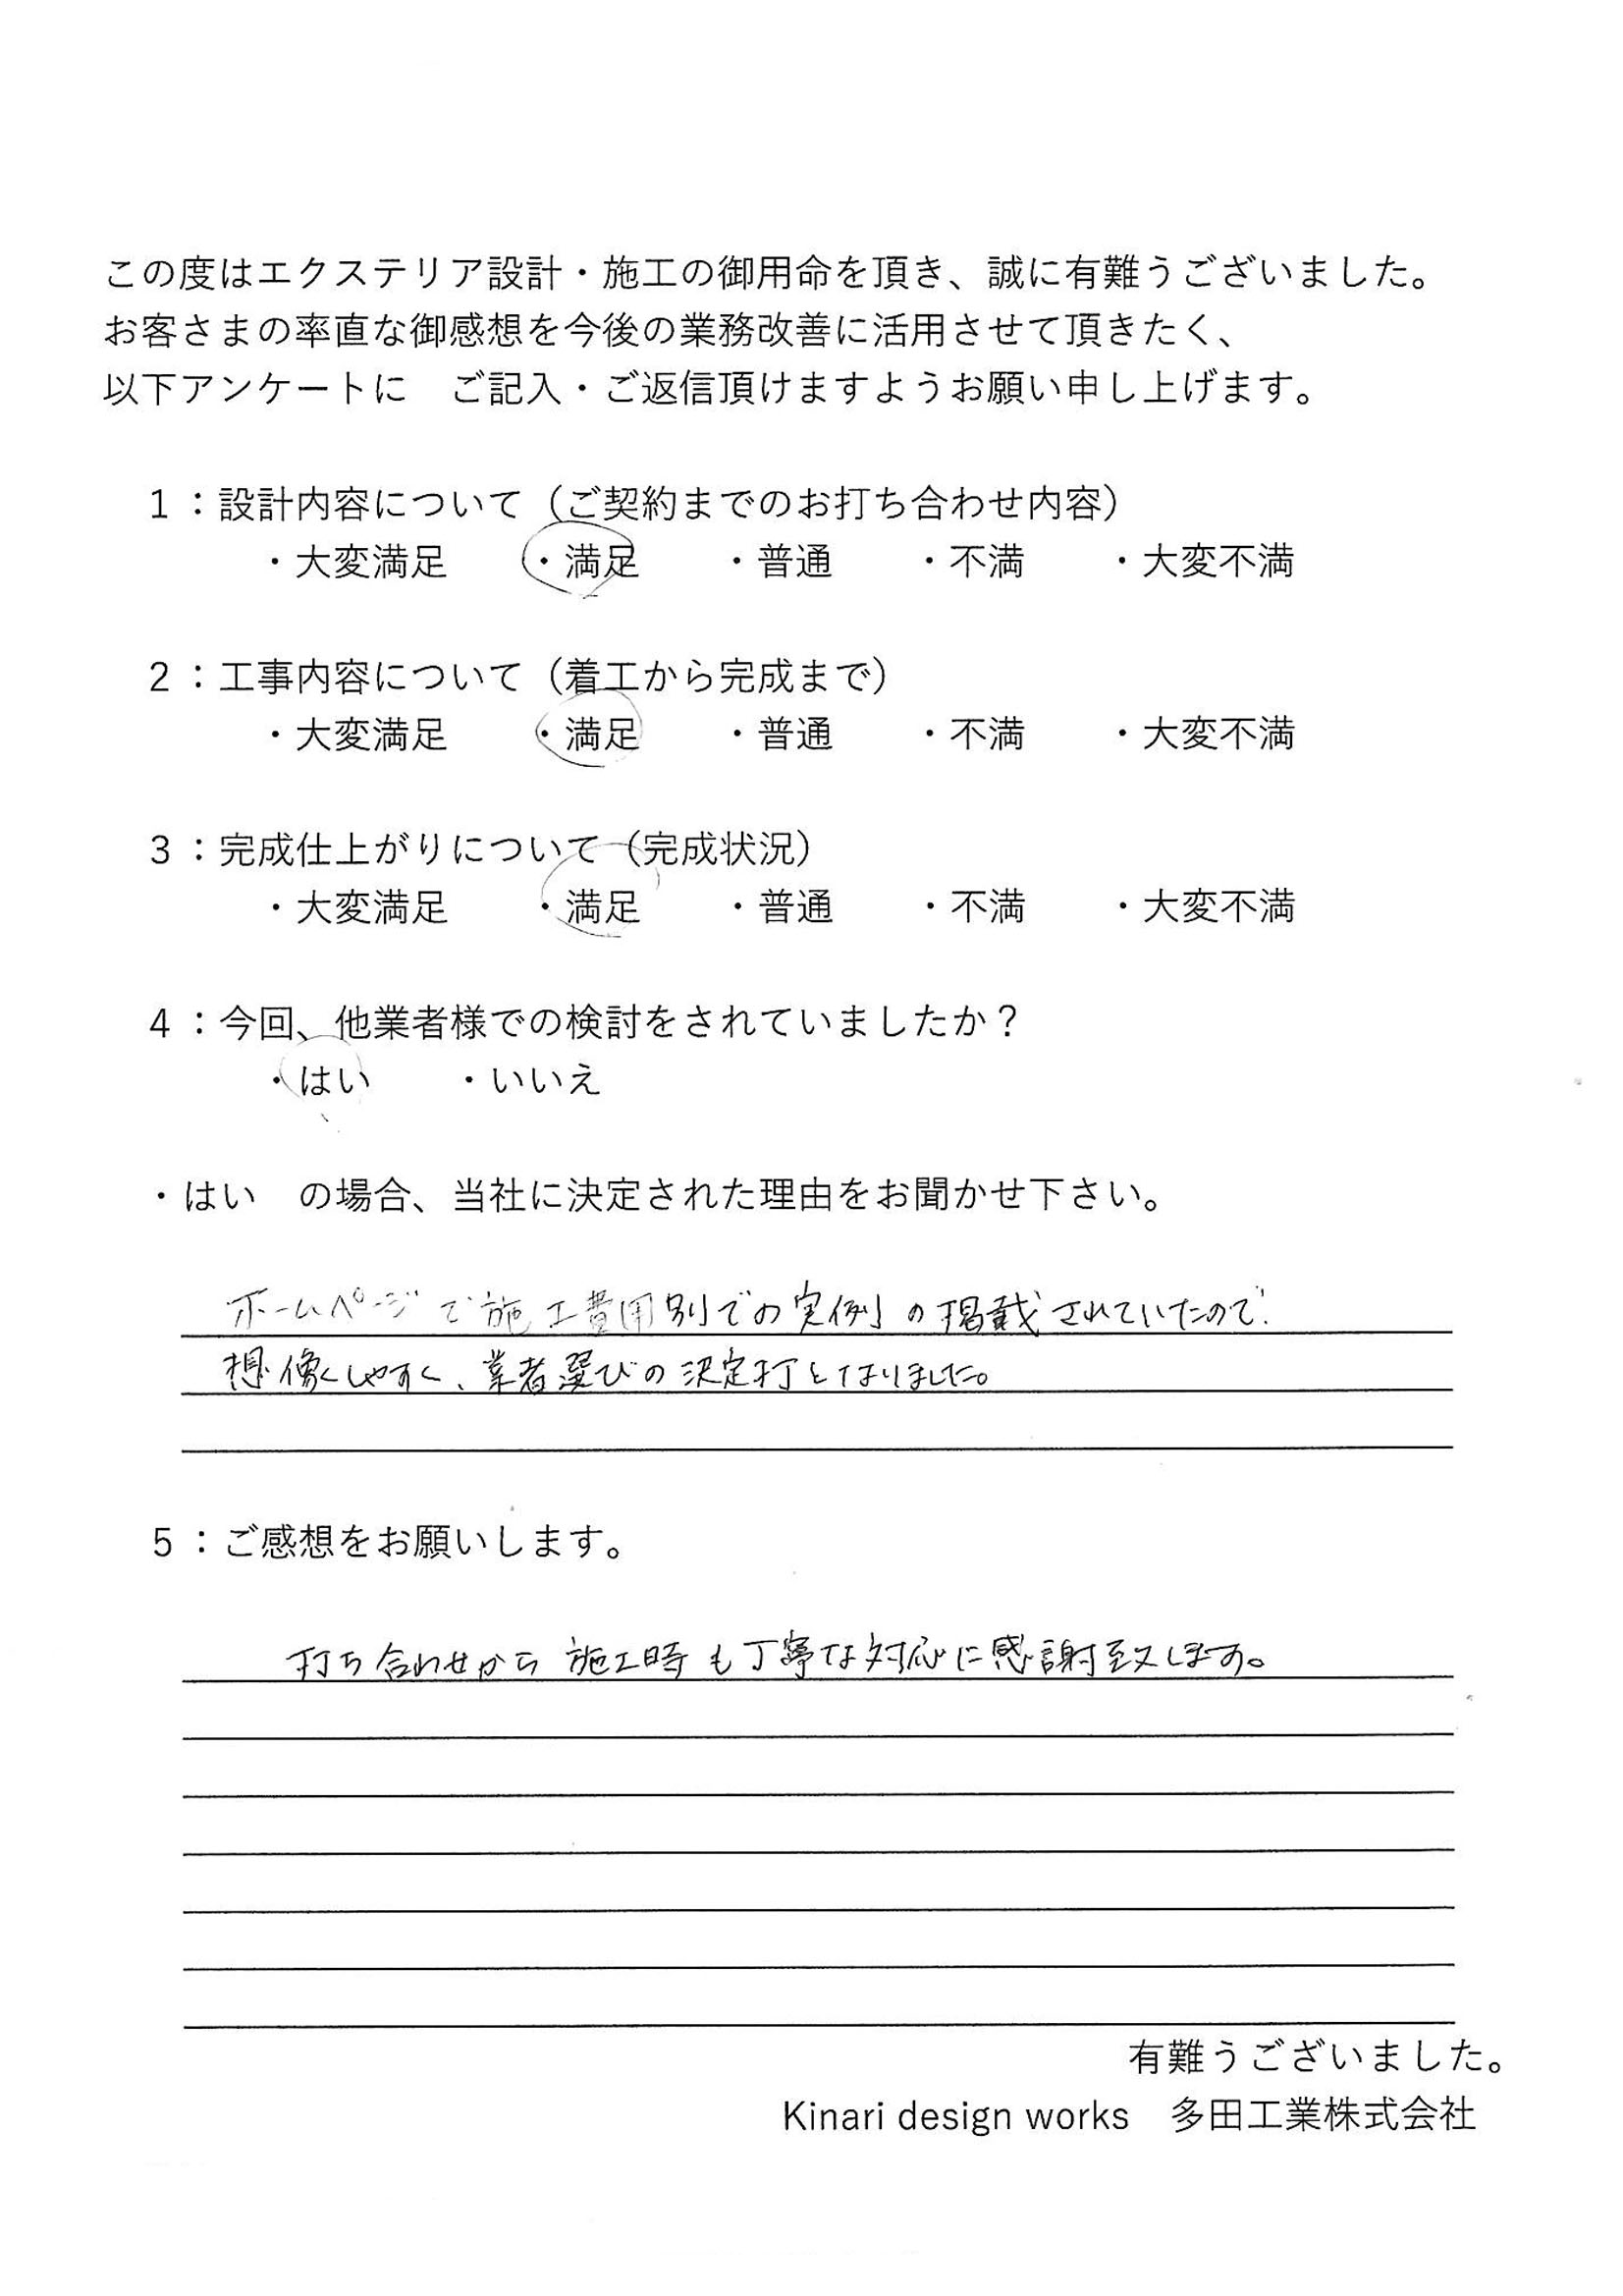 この度はエクステリア設計・施工の御用命を頂き、誠に有難うございました。
お客さまの率直な御感想を今後の業務改善に活用させて頂きたく、
以下アンケートに　ご記入・ご返信頂けますようお願い申し上げます。
1：設計内容について（ご契約までのお打ち合わせ内容）
・大変満足　・満足　・普通　・不満　・大変不満
2：工事内容について（着工から完成まで）
・大変満足　・満足　・普通　・不満　・大変不満
3：完成仕上がりについて（完成状況）
・大変満足　・満足　・普通　・不満　・大変不満
4：今回、他業者様での検討をされていましたか？
・はい　・いいえ
・はい　の場合、当社に決定された理由をお聞かせ下さい。
ホームページで施工費用別での実例の掲載されていたので
想像しやすく、業者選びの決定打となりました。
5：ご感想をお願いします。
打ち合わせから施工時も丁寧な対応に感謝致します。
有難うございました。
Kinari design works　多田工業株式会社